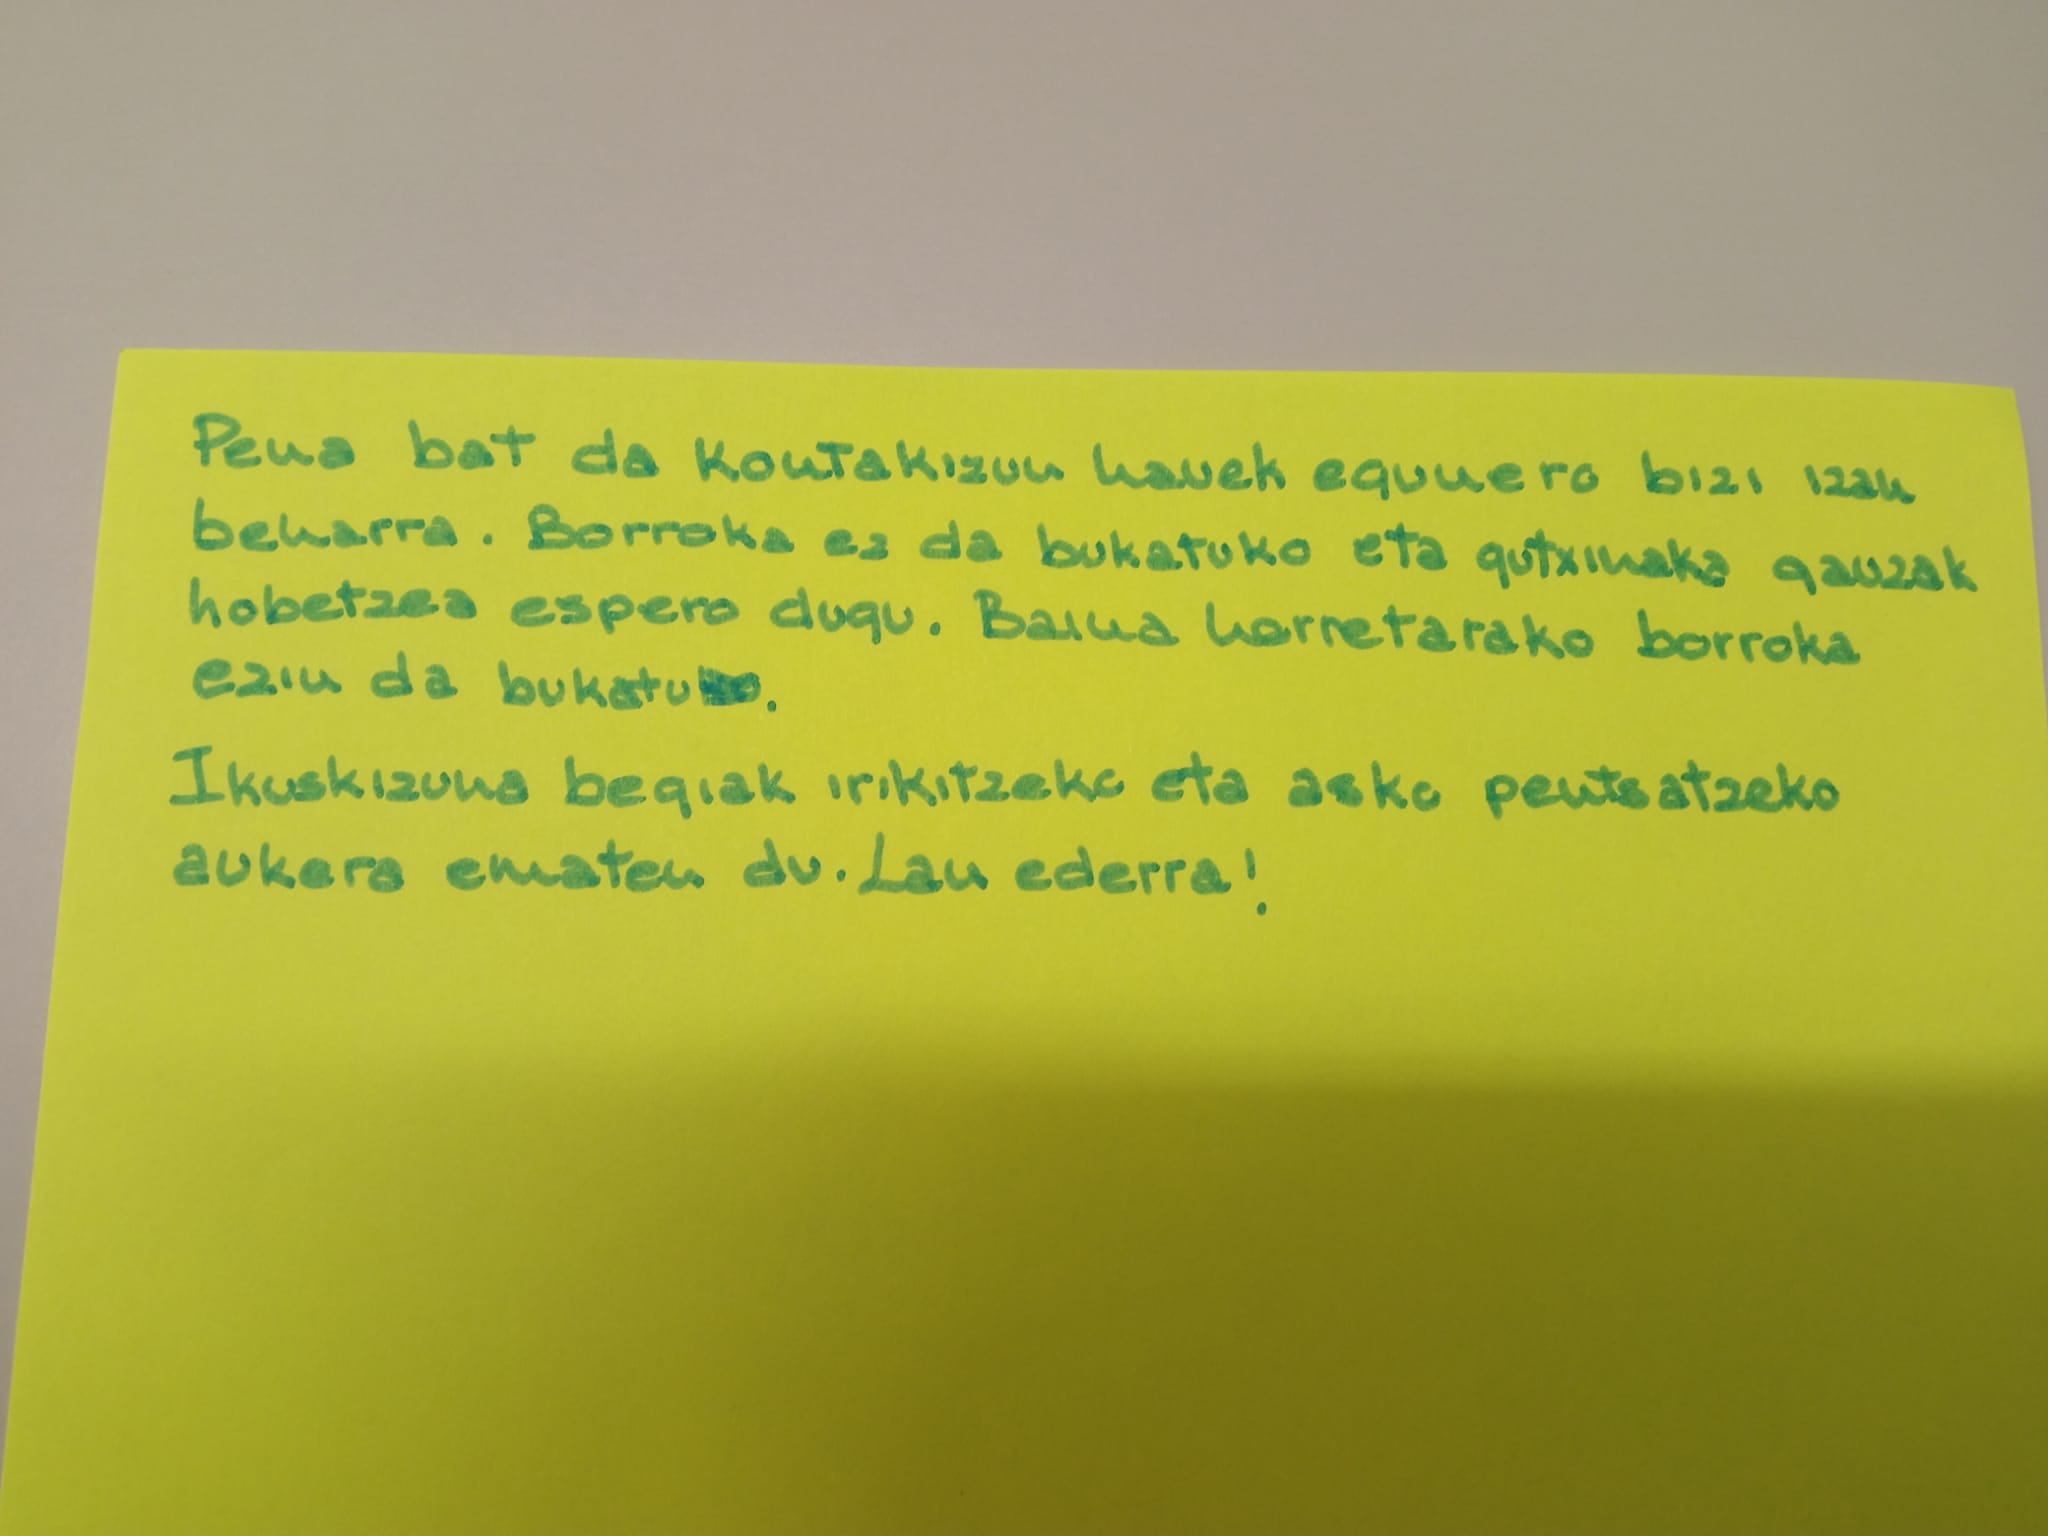 Pena bat da kontakizun hauek egunero bizi izan
beharra. Borroka ez da bukatuko eta gutxinaka gauzak
hobetzea espero dugu. Baina horretarako borroka
ezin da bukatu.
Ikuskizuna begiak irikitzeko eta asko pentsatzeko
aukera ematen du. Lan ederra!